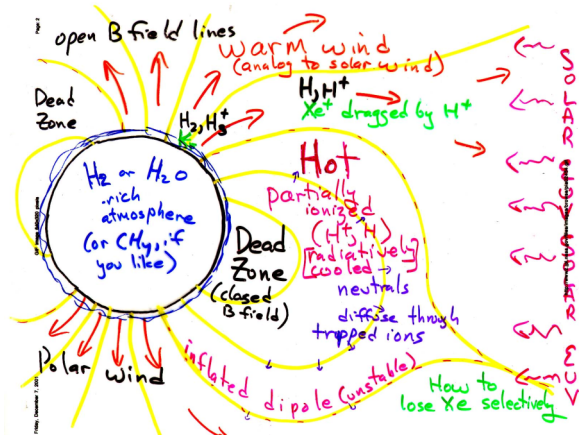 Page 2
open B field lines
warm wind
(analog to solar wind)
Dead
Zone
H₂, H₃⁺
H, H⁺
Xe⁺ dragged by H⁺
H₂ or H₂O
-rich
atmosphere
(or CH₄, if
you like)
Hot
partially
ionized
(H⁺, H)
[radiatively
cooled]
neutrals
diffuse through
trapped ions
Dead
Zone
(closed
B field)
Polar wind
inflated dipole (unstable)
How to
lose Xe selectively
SOLAR EUV SOLAR EUV
Friday, December 7, 2001